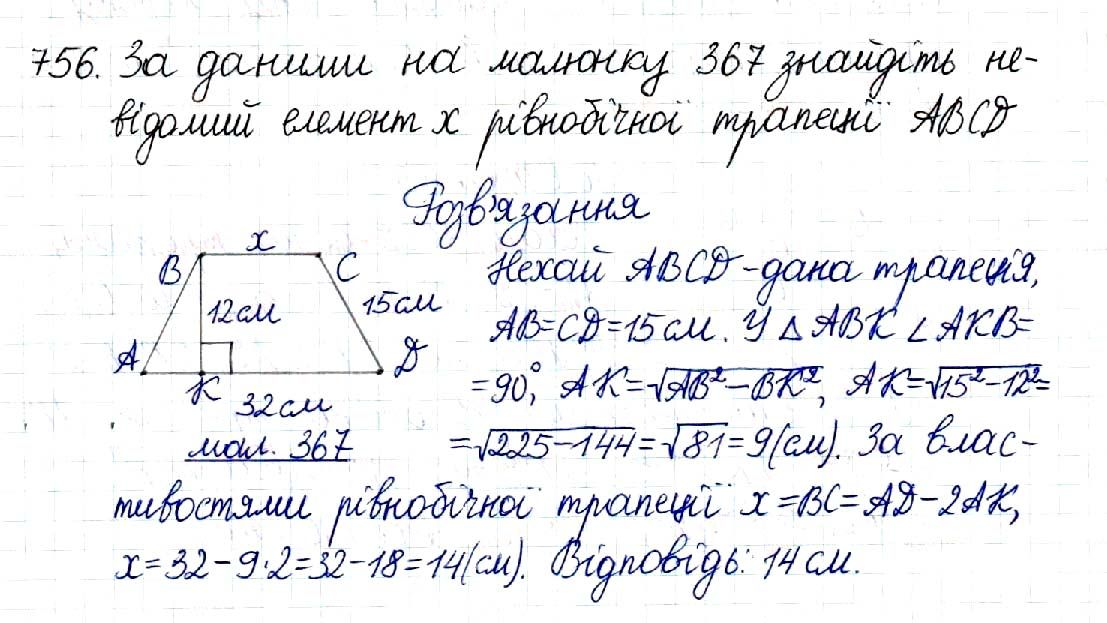 756. За даними на малюнку 367 знайдіть не-
відомий елемент x рівнобічної трапеції ABCD
Розв'язання
x
B
C
12см
15см
A
K
D
32см
мал. 367
Нехай ABCD - дана трапеція,
AB=CD=15см. У △ABK ∠AKB=
=90°, AK=√AB²-BK², AK=√15²-12²=
=√225-144=√81=9(см). За влас-
тивостями рівнобічної трапеції x=BC=AD-2AK,
x=32-9·2=32-18=14(см). Відповідь: 14см.